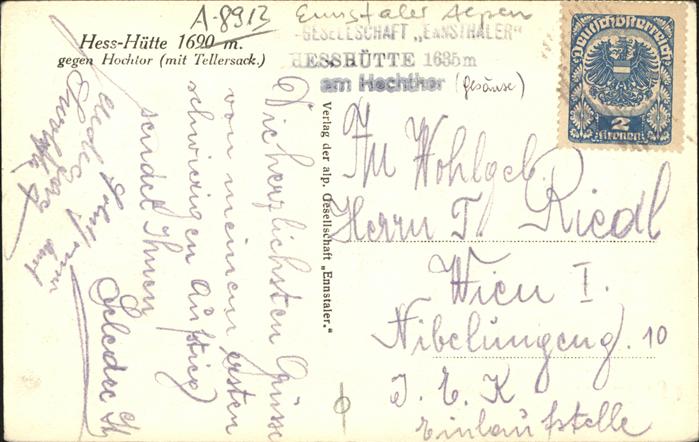 A-8913 Ennstaler Alpen
Hess-Hütte 1690 m.
gegen Hochtor (mit Tellersack.)
GESELLSCHAFT „ENNSTHALER"
HESSHÜTTE 1685m
am Hochthor (Gesäuse)
Deutschösterreich
2
Kronen
Verlag der alp. Gesellschaft „Ennstaler."
Die herzlichsten Grüsse
von meinem ersten
schwierigen Aufstieg
sendet Ihnen
An Wohlgeb.
Herrn T. Riedl
Wien I.
Nibelungeng. 10
I. E. K
Einlaufstelle